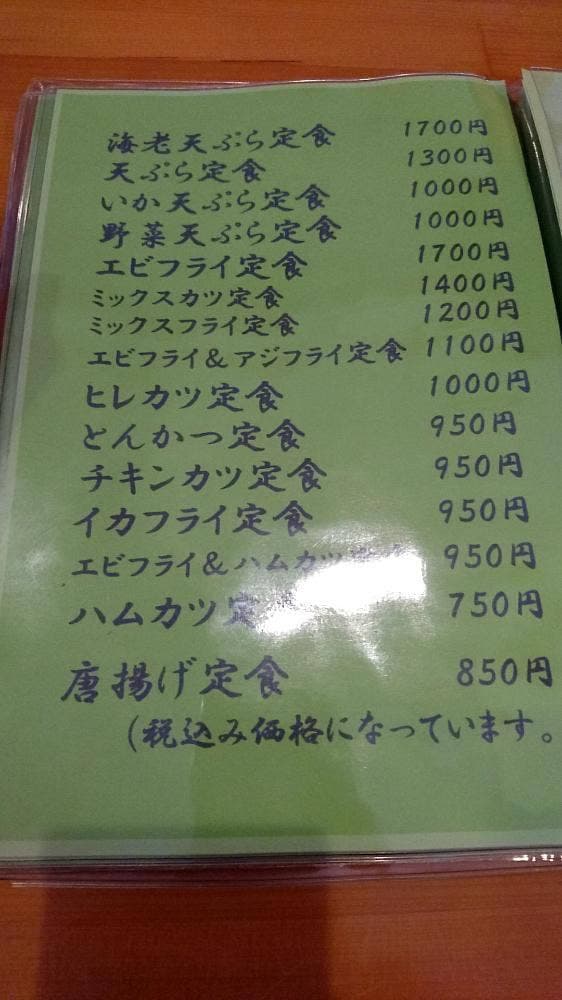 海老天ぷら定食 1700円
天ぷら定食 1300円
いか天ぷら定食 1000円
野菜天ぷら定食 1000円
エビフライ定食 1700円
ミックスカツ定食 1400円
ミックスフライ定食 1200円
エビフライ&アジフライ定食 1100円
ヒレカツ定食 1000円
とんかつ定食 950円
チキンカツ定食 950円
イカフライ定食 950円
エビフライ&ハムカツ 950円
ハムカツ定 750円
唐揚げ定食 850円
(税込み価格になっています。